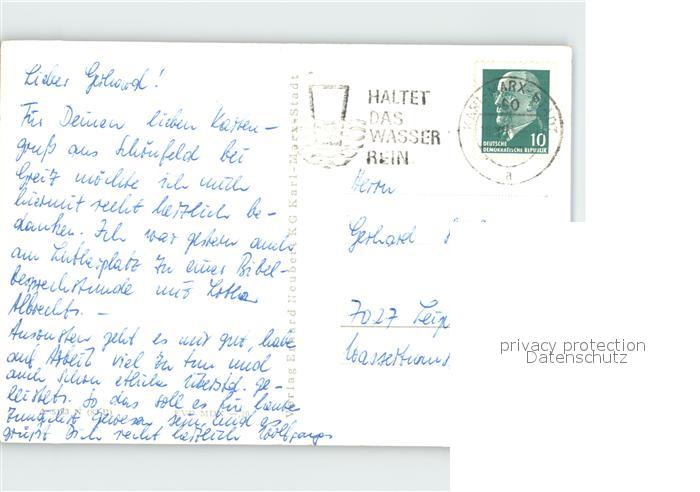 Lieber Gerhard!
Für Deinen lieben Karten-
gruß aus Schönfeld bei
Greiz möchte ich mich
hiermit recht herzlich be-
danken. Ich war gestern auch
am Lutherplatz zu einer Bibel-
besprechstunde mit Lothar
Albrecht. –
Ansonsten geht es mir gut, habe
auf Arbeit viel zu tun und
auch schon etliche Überstd. ge-
leistet. So das soll es für heute
zunächst gewesen sein und es
grüßt Dich recht herzlich Wolfgang
Verlag Erhard Neubert KG Karl-Marx-Stadt
HALTET
DAS
WASSER
REIN
KARL-MARX-STADT
a
10
DEUTSCHE
DEMOKRATISCHE REPUBLIK
Herrn
Gerhard
7027 Leip
privacy protection
Datenschutz